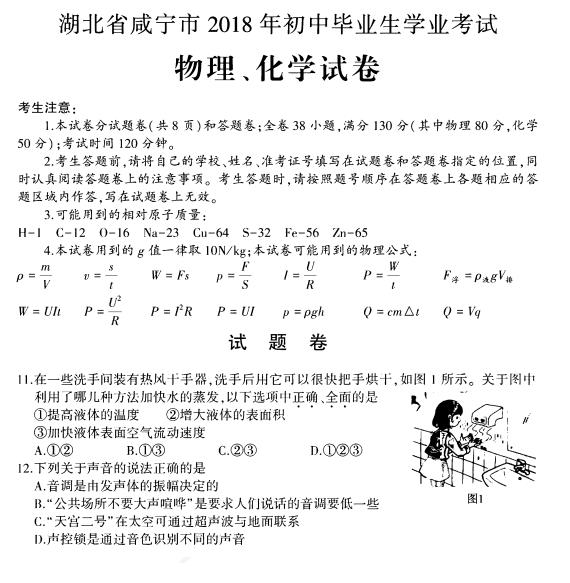 湖北省咸宁市 2018 年初中毕业生学业考试
物理、化学试卷
考生注意:
1.本试卷分试题卷(共 8 页)和答题卷;全卷 38 小题,满分 130 分(其中物理 80 分,化学
50 分);考试时间 120 分钟。
2.考生答题前,请将自己的学校、姓名、准考证号填写在试题卷和答题卷指定的位置,同
时认真阅读答题卷上的注意事项。考生答题时,请按照题号顺序在答题卷上各题相应的答
题区域内作答,写在试题卷上无效。
3.可能用到的相对原子质量:
H-1 C-12 O-16 Na-23 Cu-64 S-32 Fe-56 Zn-65
4.本试卷用到的 g 值一律取 10N/kg;本试卷可能用到的物理公式:
ρ = m/V v = s/t W = Fs p = F/S I = U/R P = W/t F浮 = ρ液gV排
W = UIt P = U²/R P = I²R P = UI p = ρgh Q = cm△t Q = Vq
试 题 卷
11.在一些洗手间装有热风干手器,洗手后用它可以很快把手烘干,如图 1 所示。关于图中
利用了哪几种方法加快水的蒸发,以下选项中正确、全面的是
①提高液体的温度 ②增大液体的表面积
③加快液体表面空气流动速度
A.①② B.①③ C.②③ D.①②③
12.下列关于声音的说法正确的是
A.音调是由发声体的振幅决定的
B.“公共场所不要大声喧哗”是要求人们说话的音调要低一些
C.“天宫二号”在太空可通过超声波与地面联系
D.声控锁是通过音色识别不同的声音
图1